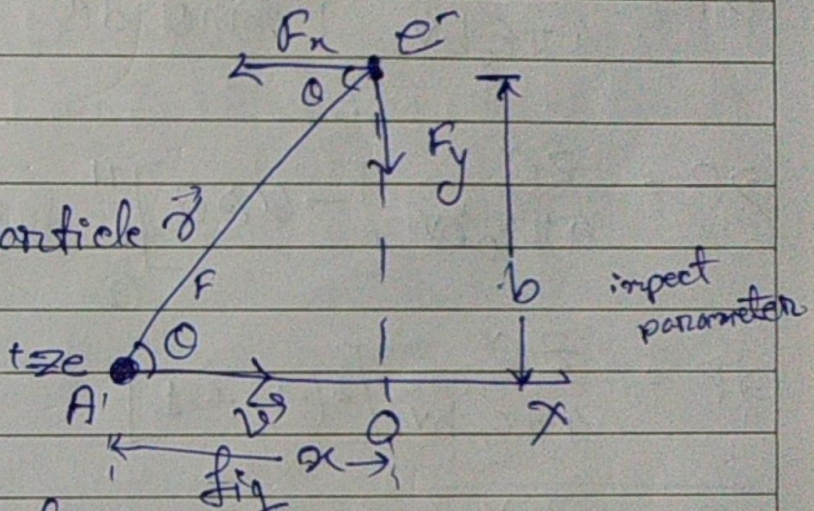 Fx e-
θ
Fy
article r⃗
F
b impect
parameter
+ze θ
A v⃗ O X
x
fig